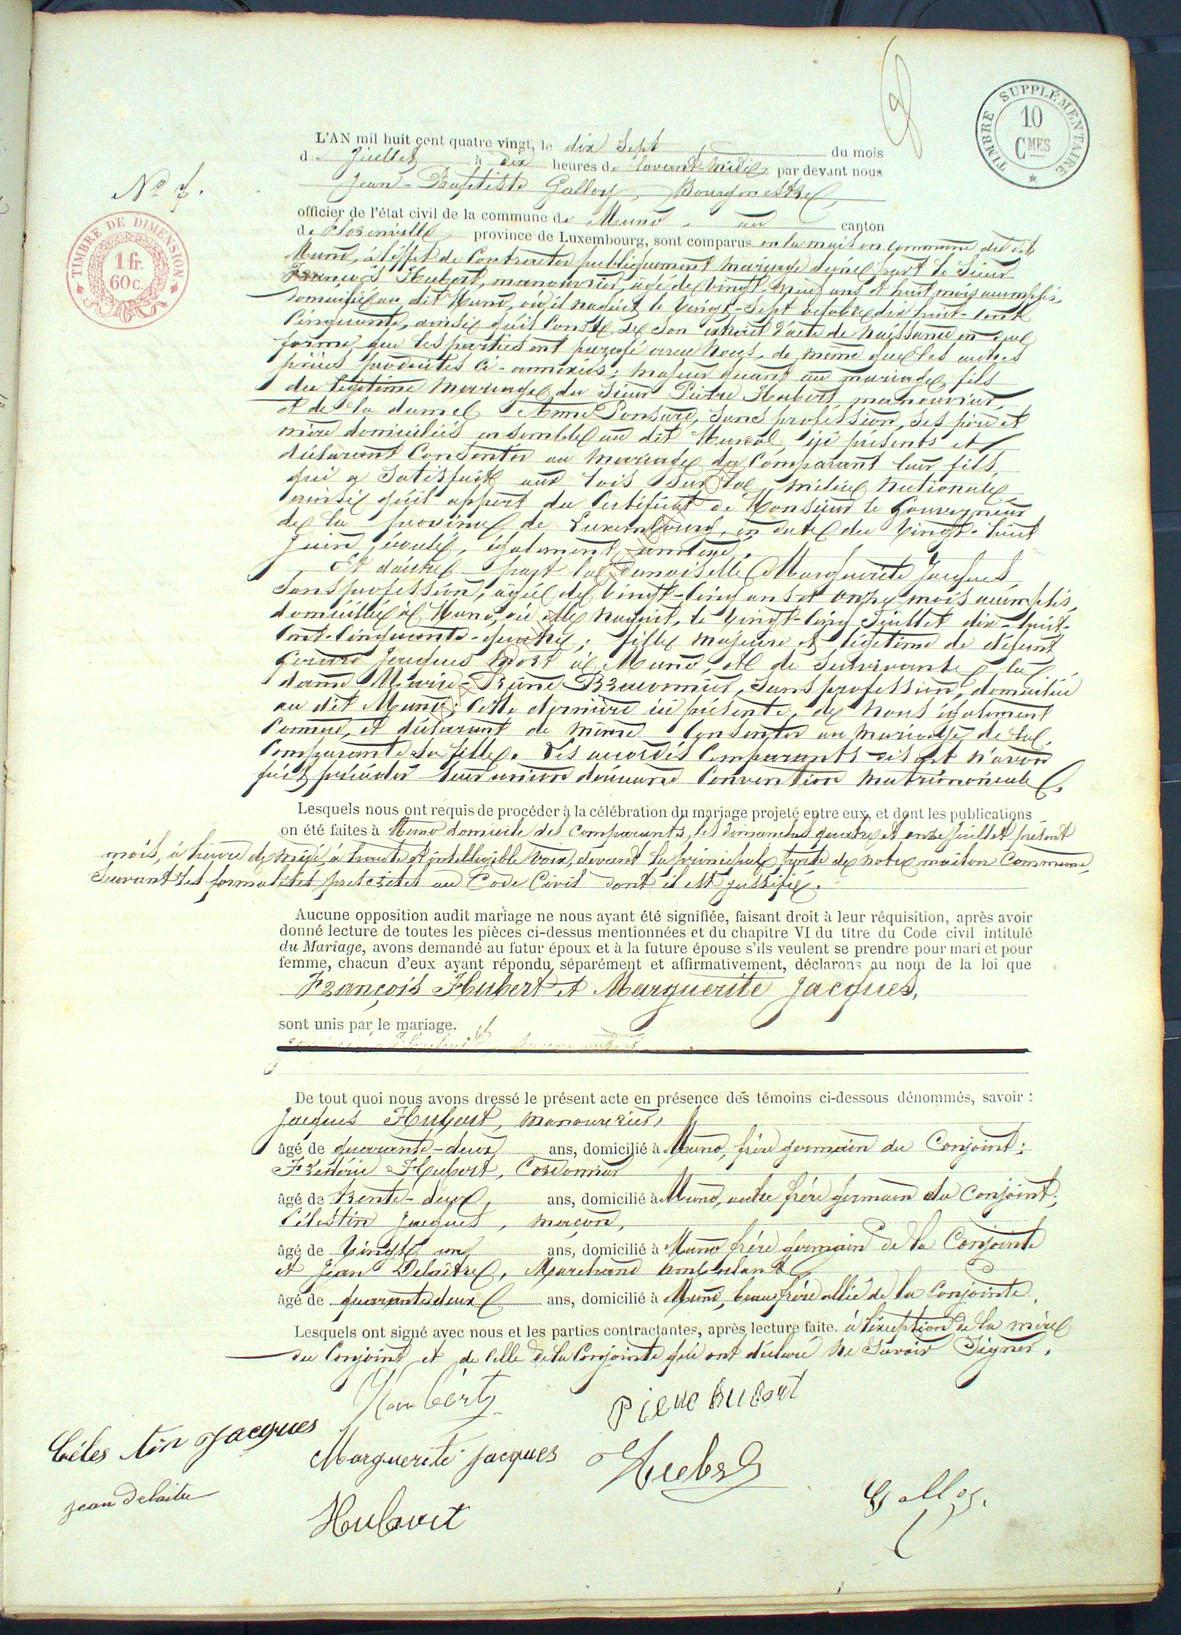 TIMBRE SUPPLÉMENTAIRE
10
CMES
L'AN mil huit cent quatre vingt, le dix Sept du mois
de Juillet à dix heures de l'avant-Midi, par devant nous
Jean-Baptiste Galloy, Bourgmestre,
No 7.
TIMBRE DE DIMENSION
1 fr.
60 c.
officier de l'état civil de la commune de Muno, canton
de Florenville province de Luxembourg, sont comparus en la maison commune du dit
Muno, à l'effet de Contracter publiquement mariage d'une part le Sieur
François Hubert, manouvrier, âgé de vingt neuf ans et huit mois accomplis,
domicilié au dit Muno, où il naquit le Vingt-Sept octobre dix huit-Cent
Cinquante, ainsi qu'il Conste de Son extrait d'acte de Naissance en due
forme que les parties ont paraphé avec Nous, de même que les autres
pièces produites ci-annexées; majeur quant au mariage, fils
du légitime Mariage du Sieur Pierre Hubert, manouvrier,
et de la dame Anne Ponsard, Sans profession, Ses père et
mère domiciliés ensemble au dit Muno, ici présents et
déclarant Consentir au Mariage du Comparant leur fils,
qui a Satisfait aux lois Sur la milice Nationale
ainsi qu'il appert du Certificat de Monsieur le Gouverneur
de la province de Luxembourg, en date du Vingt-huit
Juin écoulé, également annexé.
Et d'autre part la Demoiselle Marguerite Jacques
Sans profession, âgée de Vingt-Cinq ans et onze mois accomplis,
domiciliée à Muno, où elle naquit, le Vingt-Cinq Juillet dix-huit-
Cent-Cinquante-quatre; fille majeure et légitime de défunt
Jacques mort à Muno, et de Survivante la
dame Marie- Braconnier, Sans profession, domiciliée
au dit Muno, Cette dernière ici présente, de Nous également
Connue, et déclarant de même Consentir au mariage de la
Comparante Sa fille. Les accordés Comparants n'avoir
fait précéder leur union d'aucune Convention matrimoniale.
Lesquels nous ont requis de procéder à la célébration du mariage projeté entre eux, et dont les publications
on été faites à Muno domicile des Comparants, les dimanches quatre et onze Juillet présent
mois, à heure de midi à haute et intelligible voix, devant la principale porte de notre maison Commune,
Suivant les formalités prescrites au Code Civil dont il est justifié.
Aucune opposition audit mariage ne nous ayant été signifiée, faisant droit à leur réquisition, après avoir
donné lecture de toutes les pièces ci-dessus mentionnées et du chapitre VI du titre du Code civil intitulé
du Mariage, avons demandé au futur époux et à la future épouse s'ils veulent se prendre pour mari et pour
femme, chacun d'eux ayant répondu séparément et affirmativement, déclarons au nom de la loi que
François Hubert et Marguerite Jacques,
sont unis par le mariage.
De tout quoi nous avons dressé le présent acte en présence des témoins ci-dessous dénommés, savoir :
Jacques Hubert, manouvrier,
âgé de quarante-deux ans, domicilié à Muno, frère germain du Conjoint;
Frédéric Hubert, Cordonnier
âgé de trente-deux, ans, domicilié à Muno, autre frère germain du Conjoint;
Célestin Jacques, maçon,
âgé de Vingt un ans, domicilié à Muno frère germain de la Conjointe
et Jean Delaitre, Marchand
âgé de quarante deux ans, domicilié à Muno, beau frère allié de la Conjointe.
Lesquels ont signé avec nous et les parties contractantes, après lecture faite. à l'exception de la mère
du Conjoint et de Celle de la Conjointe qui ont déclaré Ne Savoir Signer.
Pierre Hubert
Célestin Jacques
Marguerite Jacques
Hubert
jean delaitre
Hubert
Galloy.